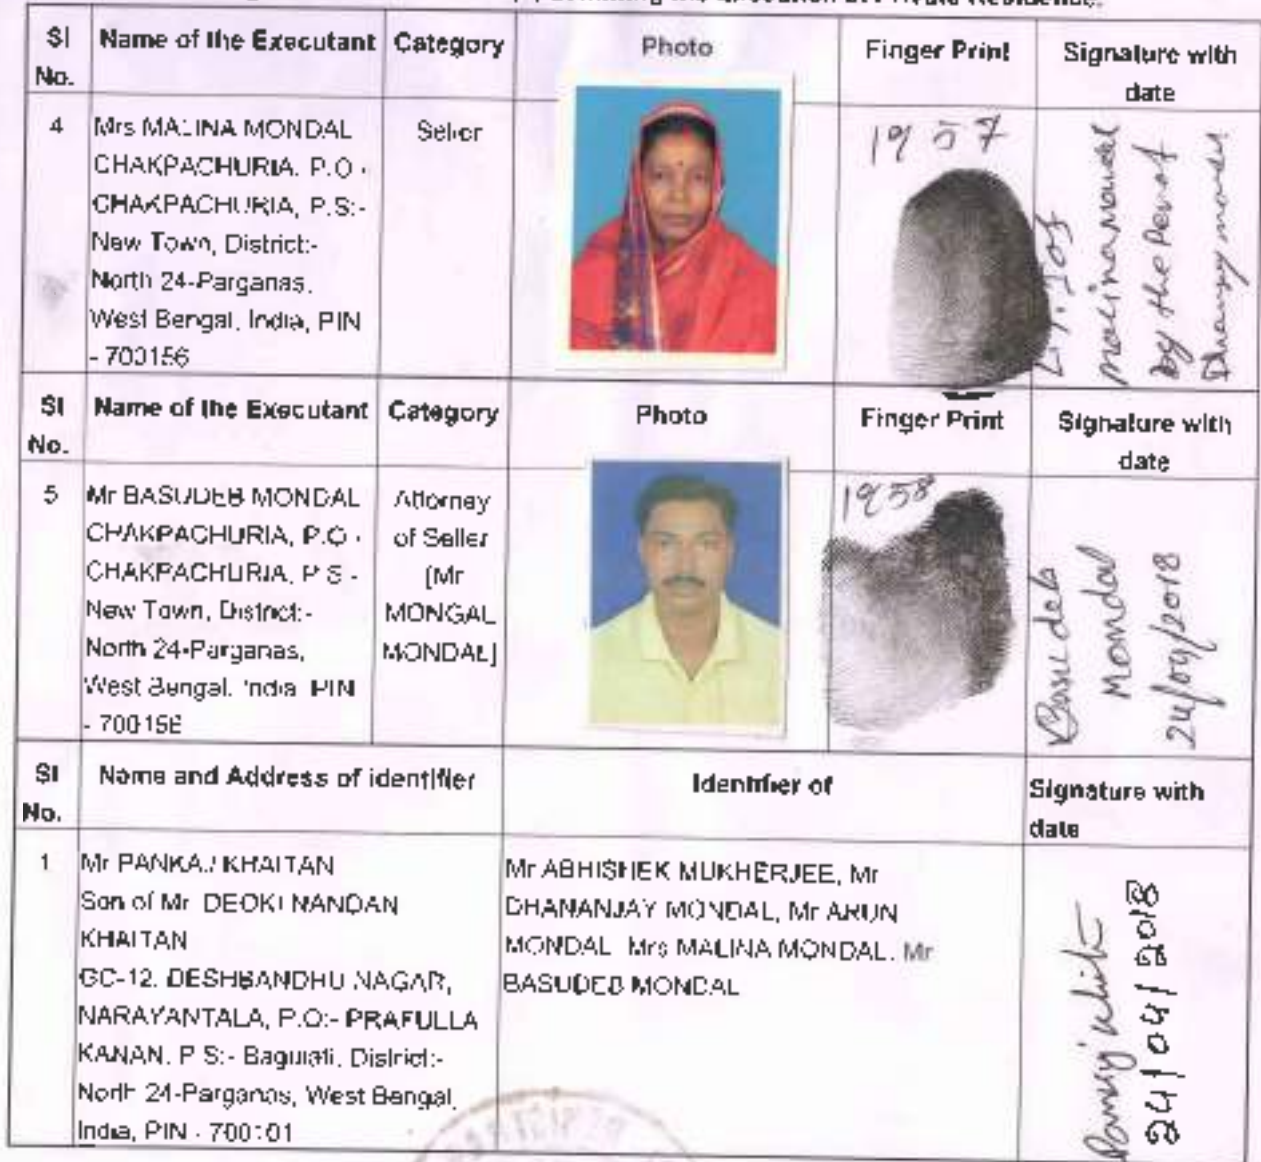 Sl No. Name of the Executant Category Photo Finger Print Signature with date
4 Mrs MALINA MONDAL
CHAKPACHURIA, P.O -
CHAKPACHURIA, P.S:-
New Town, District:-
North 24-Parganas,
West Bengal, India, PIN
- 700156
Seller
1957
L.T.I of
Malina Mondal
by the Pen of
Sl No. Name of the Executant Category Photo Finger Print Signature with date
5 Mr BASUDEB MONDAL
CHAKPACHURIA, P.O -
CHAKPACHURIA, P.S -
New Town, District:-
North 24-Parganas,
West Bengal, India, PIN
- 700156
Attorney
of Seller
[Mr
MONGAL
MONDAL]
1958
Basudeb
Mondal
24/04/2018
Sl No. Name and Address of identifier Identifier of Signature with date
1 Mr PANKAJ KHAITAN
Son of Mr DEOKI NANDAN
KHAITAN
GC-12, DESHBANDHU NAGAR,
NARAYANTALA, P.O:- PRAFULLA
KANAN, P.S:- Baguiati, District:-
North 24-Parganas, West Bengal,
India, PIN - 700101
Mr ABHISHEK MUKHERJEE, Mr
DHANANJAY MONDAL, Mr ARUN
MONDAL, Mrs MALINA MONDAL, Mr
BASUDEB MONDAL
24/04/2018